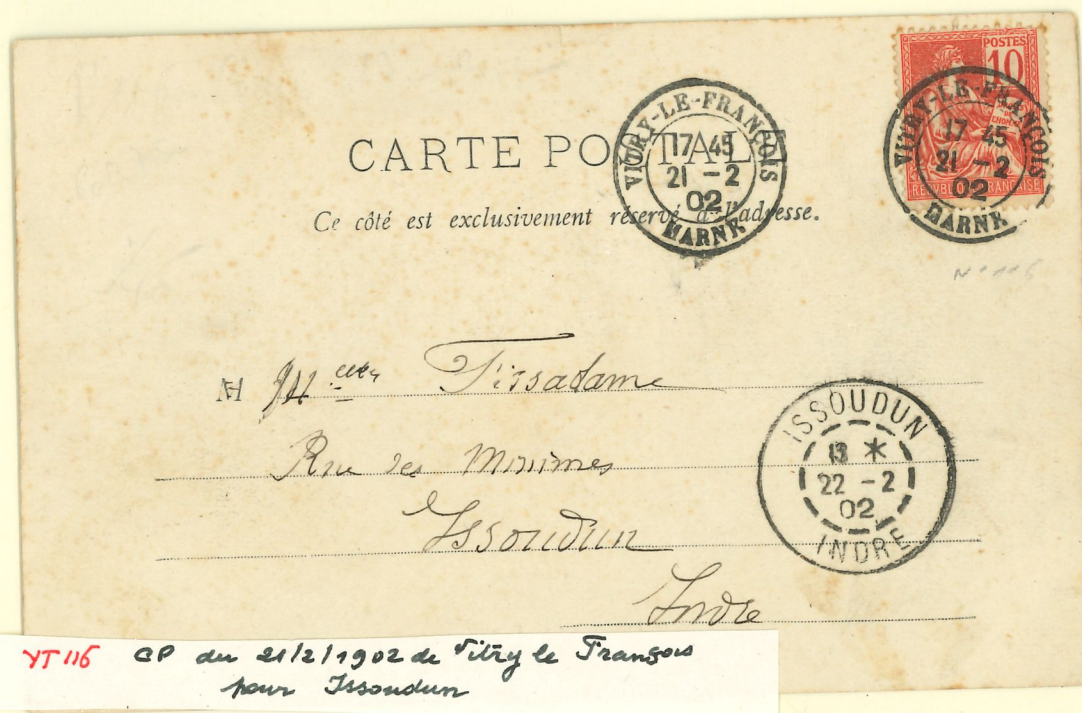 POSTES
10
RÉPUBLIQUE FRANÇAISE
VITRY-LE-FRANÇOIS
17 45
21 - 2
02
MARNE
VITRY-LE-FRANÇOIS
17 45
21 - 2
02
MARNE
CARTE POSTALE
Ce côté est exclusivement réservé à l'adresse.
N° 116
M elles Tissadame
Rue des Minimes
Issoudun
Indre
ISSOUDUN
13 *
22 - 2
02
INDRE
YT 116 CP du 21/2/1902 de Vitry le François
pour Issoudun